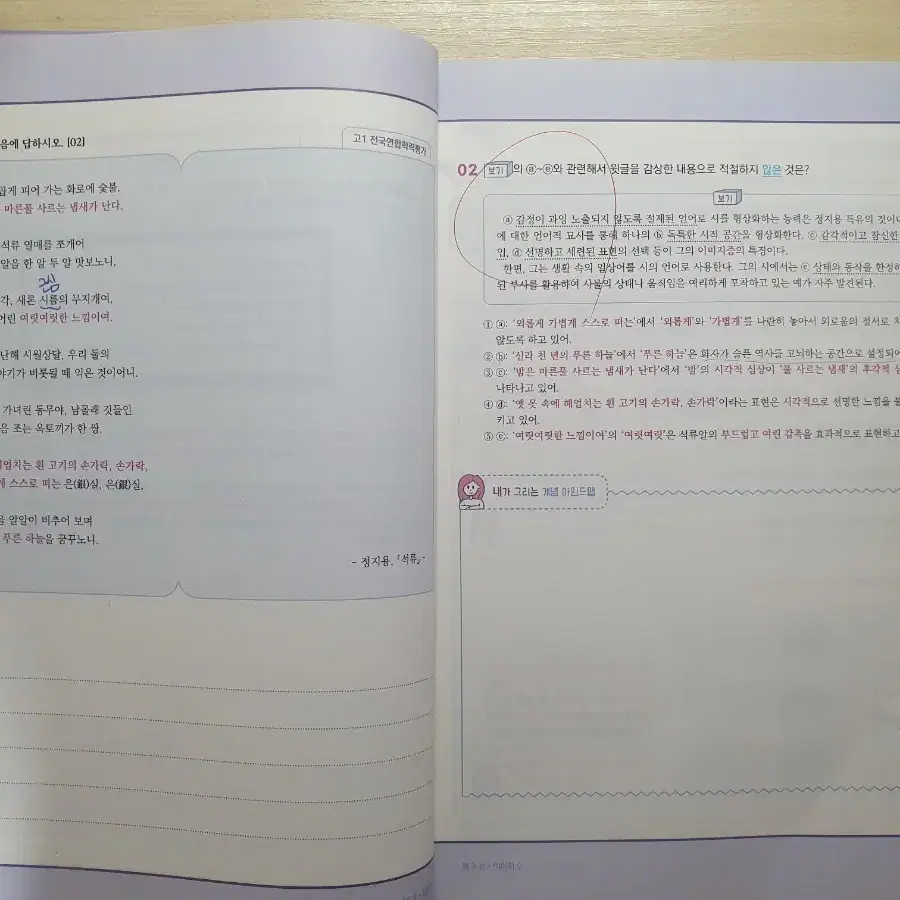 음에 답하시오. [02]
고1 전국연합학력평가
곱게 피어 가는 화로에 숯불.
마른풀 사르는 냄새가 난다.
석류 열매를 쪼개어
알을 한 알 두 알 맛보노니,
각, 새론 시름의 무지개여,
어린 여릿여릿한 느낌이여.
난해 시월상달, 우리 둘의
야기가 비롯될 때 익은 것이어니.
가녀린 동무야, 남몰래 깃들인
음 조는 옥토끼가 한 쌍.
헤엄치는 흰 고기의 손가락, 손가락,
게 스스로 떠는 은(銀)실, 은(銀)실,
을 알알이 비추어 보며
푸른 하늘을 꿈꾸노니.
- 정지용, 「석류」-
02 보기의 ⓐ~ⓔ와 관련해서 윗글을 감상한 내용으로 적절하지 않은 것은?
보기
ⓐ 감정이 과잉 노출되지 않도록 절제된 언어로 시를 형상화하는 능력은 정지용 특유의 것이
에 대한 언어적 묘사를 통해 하나의 ⓑ 독특한 시적 공간을 형상화한다. ⓒ 감각적이고 참신한
입, ⓓ 선명하고 세련된 표현의 선택 등이 그의 이미지즘의 특징이다.
한편, 그는 생활 속의 일상어를 시의 언어로 사용한다. 그의 시에서는 ⓔ 상태와 동작을 한정하
된 부사를 활용하여 사물의 상태나 움직임을 예리하게 포착하고 있는 예가 자주 발견된다.
① ⓐ: '외롭게 가볍게 스스로 떠는'에서 '외롭게'와 '가볍게'를 나란히 놓아서 외로움의 정서로 치
않도록 하고 있어.
② ⓑ: '신라 천 년의 푸른 하늘'에서 '푸른 하늘'은 화자가 슬픈 역사를 고뇌하는 공간으로 설정되어
③ ⓒ: '밤은 마른풀 사르는 냄새가 난다'에서 '밤'의 시각적 심상이 '풀 사르는 냄새'의 후각적 심
나타나고 있어.
④ ⓓ: '옛 못 속에 헤엄치는 흰 고기의 손가락, 손가락'이라는 표현은 시각적으로 선명한 느낌을 불
키고 있어.
⑤ ⓔ: '여릿여릿한 느낌이여'의 '여릿여릿'은 석류알의 부드럽고 여린 감촉을 효과적으로 표현하고
내가 그리는 개념 마인드맵